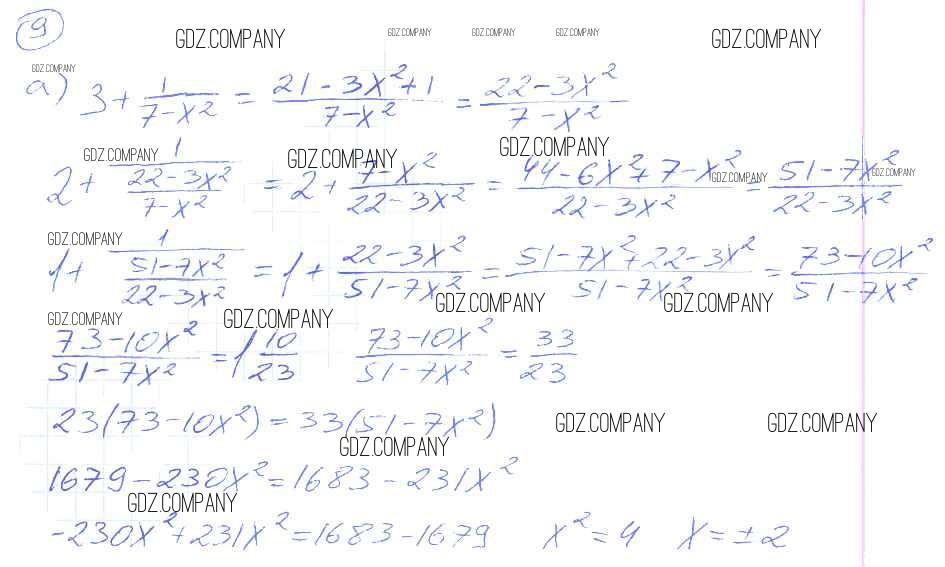 9
GDZ.COMPANY GDZ.COMPANY GDZ.COMPANY GDZ.COMPANY GDZ.COMPANY
GDZ.COMPANY
а) 3 + 1/(7-x²) = (21-3x²+1)/(7-x²) = (22-3x²)/(7-x²)
GDZ.COMPANY GDZ.COMPANY GDZ.COMPANY GDZ.COMPANY GDZ.COMPANY
2 + 1/((22-3x²)/(7-x²)) = 2 + (7-x²)/(22-3x²) = (44-6x²+7-x²)/(22-3x²) = (51-7x²)/(22-3x²)
GDZ.COMPANY
1 + 1/((51-7x²)/(22-3x²)) = 1 + (22-3x²)/(51-7x²) = (51-7x²+22-3x²)/(51-7x²) = (73-10x²)/(51-7x²)
GDZ.COMPANY GDZ.COMPANY GDZ.COMPANY GDZ.COMPANY
(73-10x²)/(51-7x²) = 1 10/23 (73-10x²)/(51-7x²) = 33/23
23(73-10x²) = 33(51-7x²)
GDZ.COMPANY GDZ.COMPANY GDZ.COMPANY
1679-230x² = 1683-231x²
GDZ.COMPANY
-230x²+231x² = 1683-1679 x² = 4 x = ±2